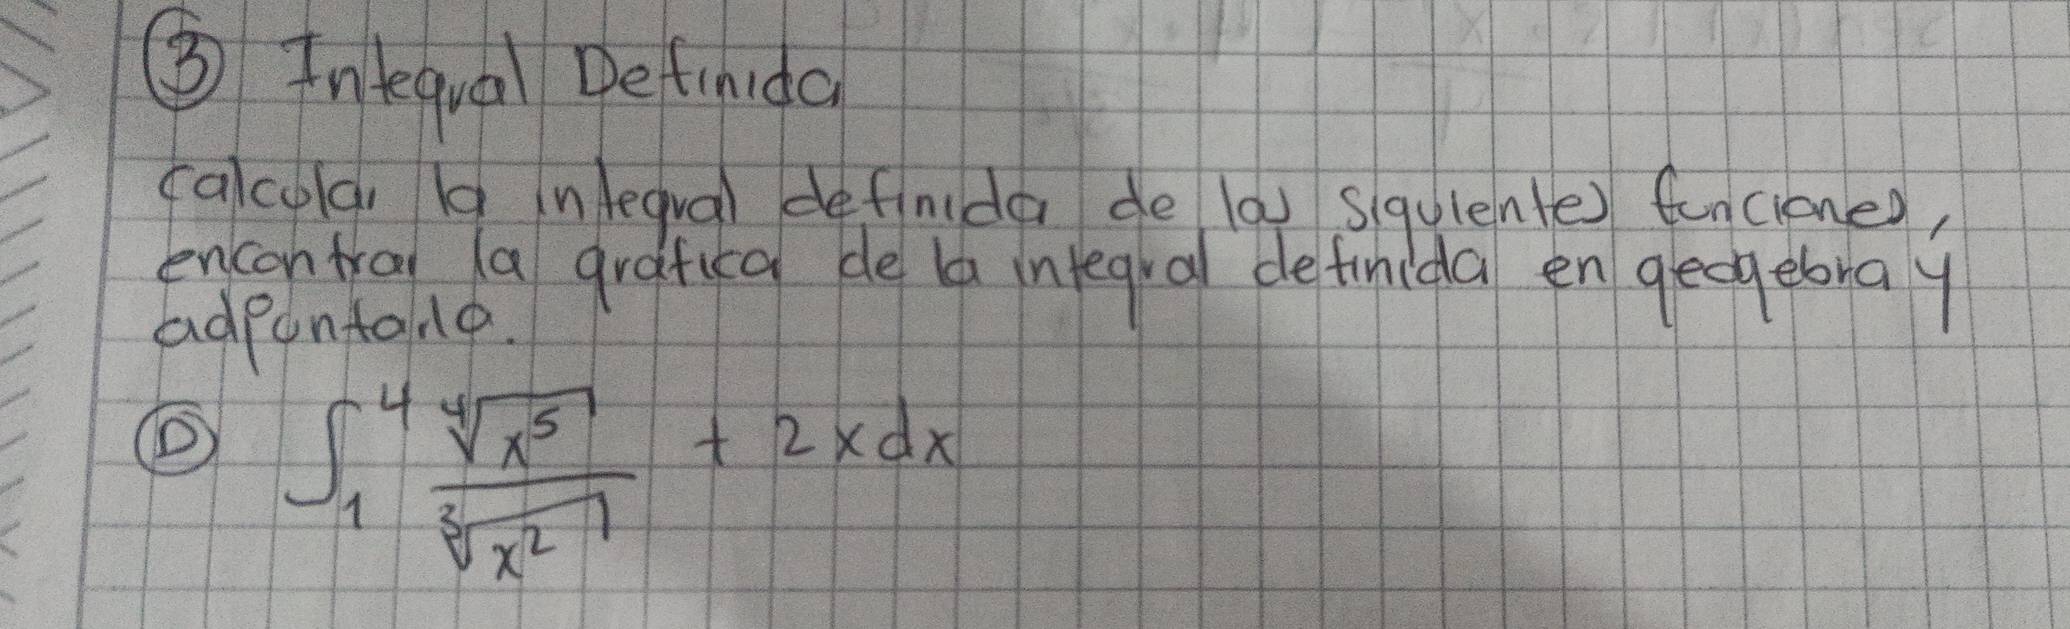 ③ Integral Definida
Calcular la integral definida de las siguientes funciones,
encontrar la gráfica de la integral definida en geogebra y
adpuntarla.
Ⓓ ∫₁⁴ ∜x⁵ / ∛x² + 2xdx